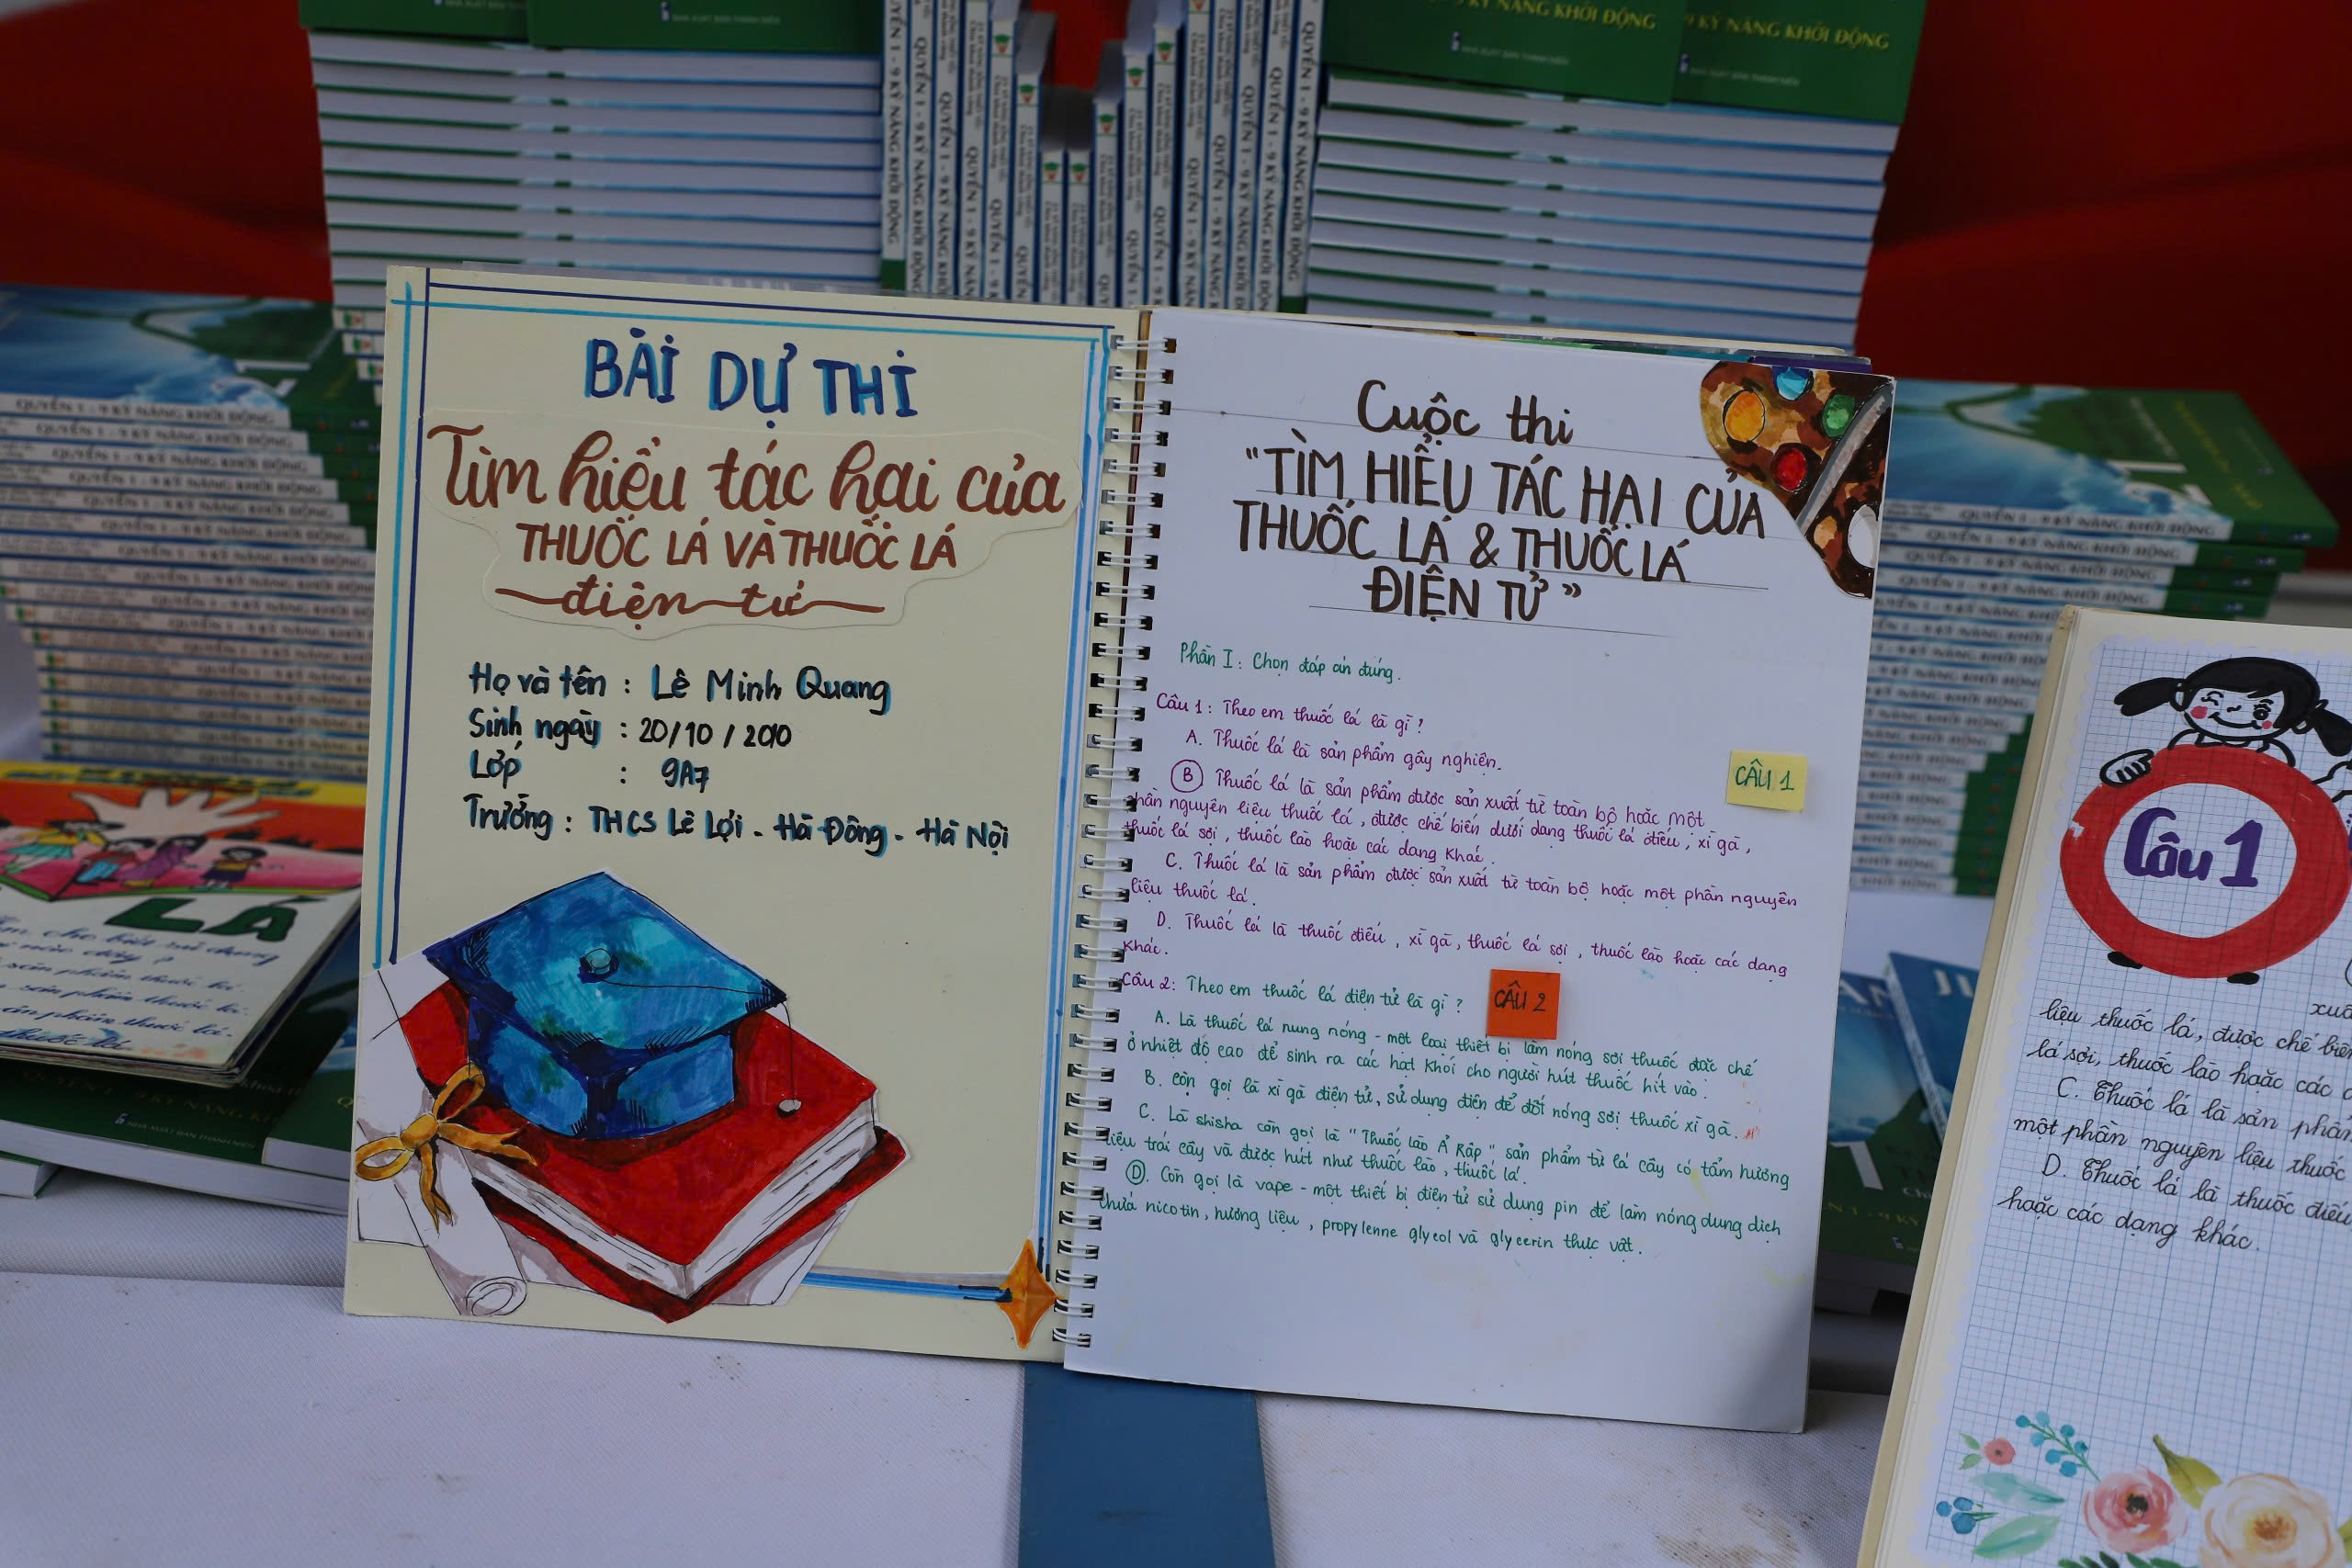 NHÀ XUẤT BẢN THANH NIÊN
9 KỸ NĂNG KHỞI ĐỘNG
9 KỸ NĂNG KHỞI ĐỘNG
QUYỂN 1 - 9 KỸ NĂNG KHỞI ĐỘNG
QUYỂN 1 - 9 KỸ NĂNG KHỞI ĐỘNG
BÀI DỰ THI
Tìm hiểu tác hại của
THUỐC LÁ VÀ THUỐC LÁ
điện tử
Họ và tên : Lê Minh Quang
Sinh ngày : 20/10/2010
Lớp : 9A7
Trường : THCS Lê Lợi - Hà Đông - Hà Nội
Cuộc thi
"TÌM HIỂU TÁC HẠI CỦA
THUỐC LÁ & THUỐC LÁ
ĐIỆN TỬ"
Phần I : Chọn đáp án đúng.
Câu 1 : Theo em thuốc lá là gì ?
A. Thuốc lá là sản phẩm gây nghiện.
CÂU 1
B. Thuốc lá là sản phẩm được sản xuất từ toàn bộ hoặc một
phần nguyên liệu thuốc lá , được chế biến dưới dạng thuốc lá điếu , xì gà ,
thuốc lá sợi , thuốc lào hoặc các dạng khác .
C. Thuốc lá là sản phẩm được sản xuất từ toàn bộ hoặc một phần nguyên
liệu thuốc lá .
D. Thuốc lá là thuốc điếu , xì gà , thuốc lá sợi , thuốc lào hoặc các dạng
khác .
Câu 2 : Theo em thuốc lá điện tử là gì ?
CÂU 2
A. Là thuốc lá nung nóng - một loại thiết bị làm nóng sợi thuốc đặc chế
ở nhiệt độ cao để sinh ra các hạt khói cho người hút thuốc hít vào .
B. Còn gọi là xì gà điện tử , sử dụng điện để đốt nóng sợi thuốc xì gà .
C. Là shisha còn gọi là "Thuốc lào Ả Rập" sản phẩm từ lá cây có tẩm hương
liệu trái cây và được hút như thuốc lào , thuốc lá .
D. Còn gọi là vape - một thiết bị điện tử sử dụng pin để làm nóng dung dịch
chứa nicotin , hương liệu , propylenne glycol và glycerin thực vật .
LÁ
Câu 1
liệu thuốc lá, được chế biến
lá sợi, thuốc lào hoặc các
C. Thuốc lá là sản phẩm
một phần nguyên liệu thuốc
D. Thuốc lá là thuốc điếu
hoặc các dạng khác.